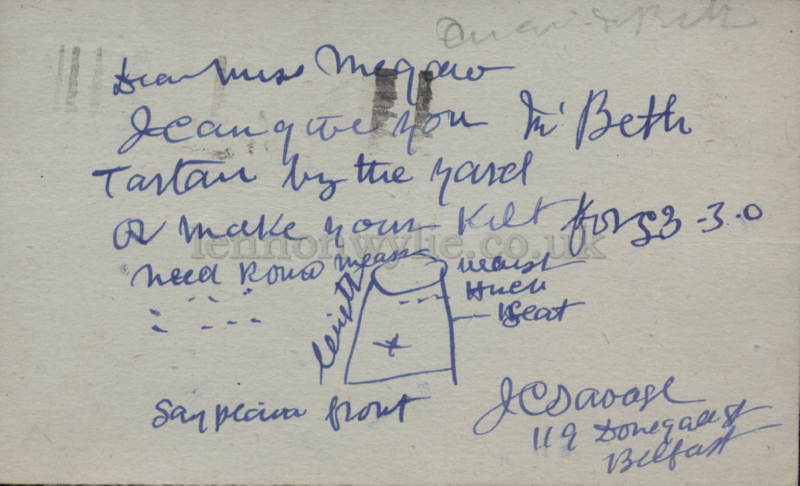 Dear Miss Megraw
I can give you Mc Beth
Tartan by the yard
or make your Kilt for £3-3-0
lennonwylie.co.uk
need Round meas
waist
seat
length
Say plain front
J C Savage
119 Donegall St
Belfast